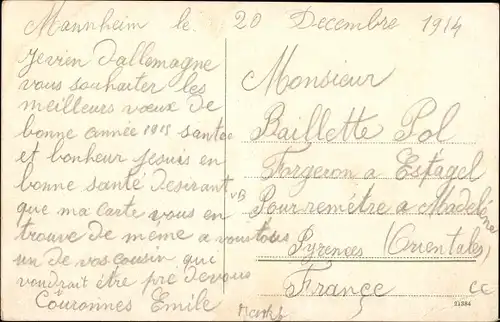 Mannheim le 20 Decembre 1914
Jevien d'allemagne
vous souhaiter les
meilleurs vœux de
bonne année 1915 santee
et bonheur Jesuis en
bonne santé desirant
que ma carte vous en
trouve de même a vous tous
un de vos cousin qui
voudrait être pré de vous
Couronnes Emile
VB
Monsieur
Baillette Pol
Forgeron a Estagel
Pour remêtre a Madeléne
Pyrences (Orientales)
France
CC
21384